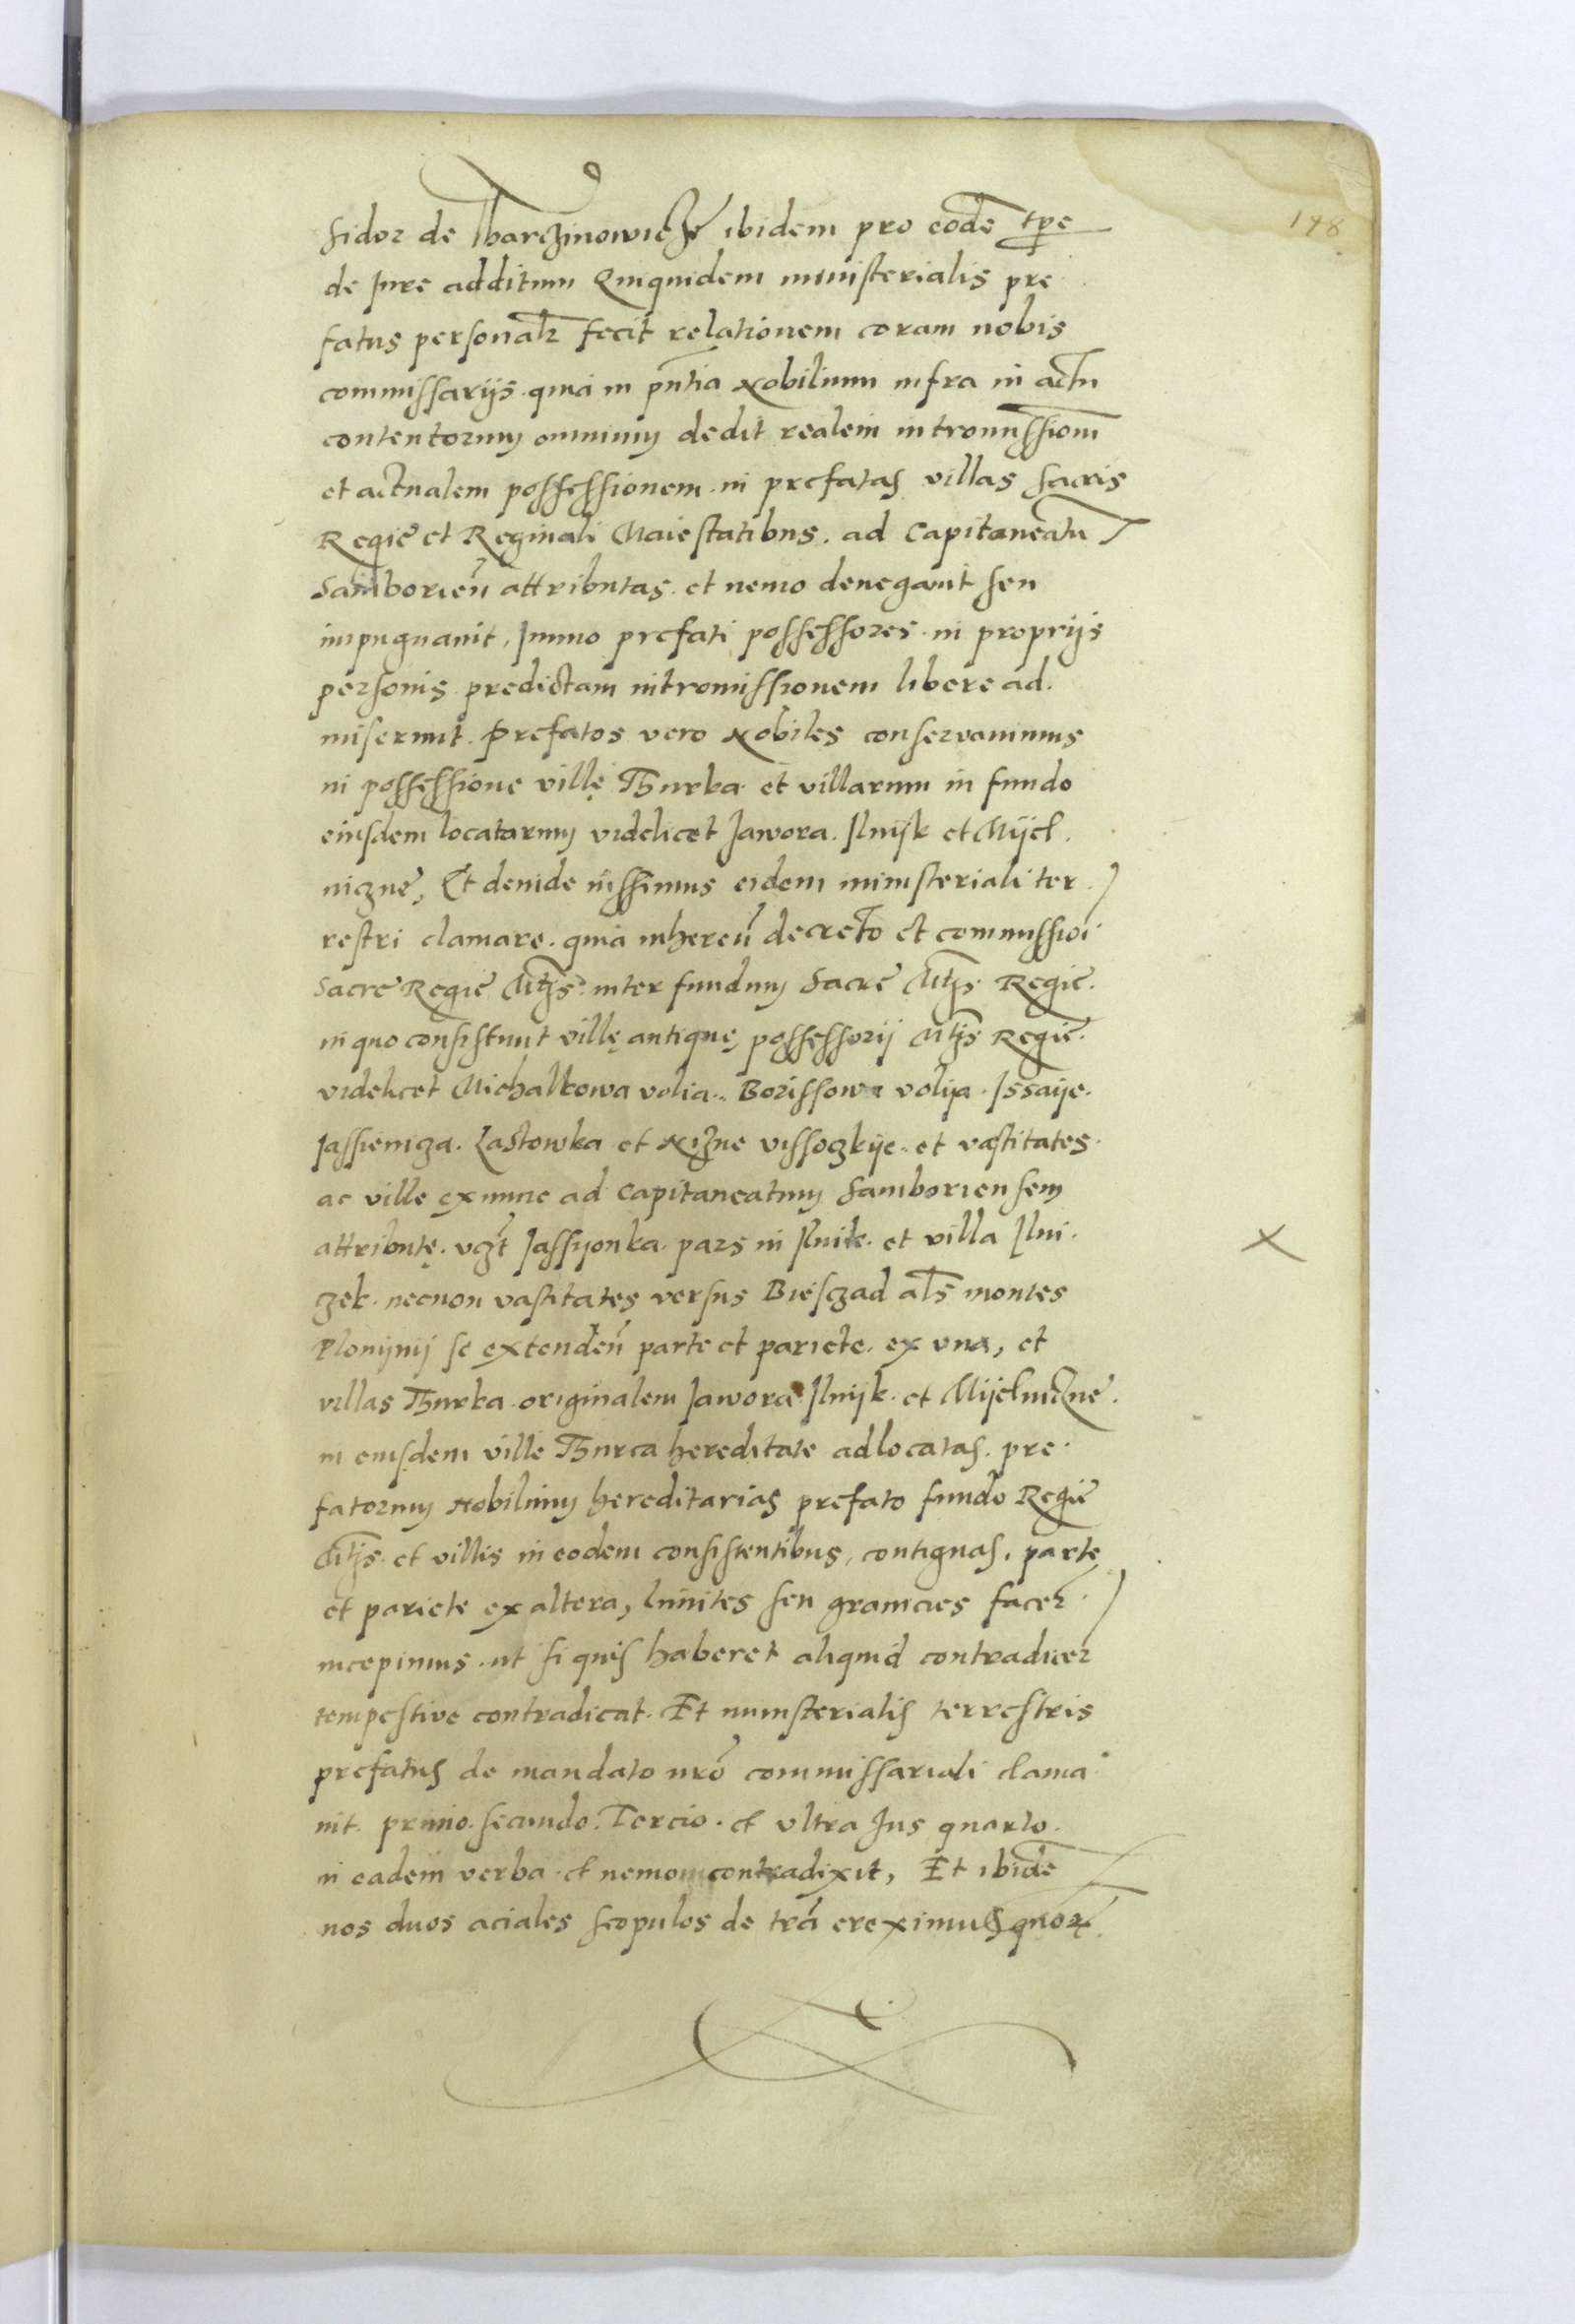 198
fidor de tharczinowicze ibidem pro eodē tp̄e
de Jure additum Quiquidem ministerialis pre
fatus personalr̄ fecit relationem coram nobis
commissarijs. quia in pn̄tia Nobilium infra in actu
contentorum omnium dedit realem intromissionē
et actualem possessionem. in prefatas villas Sacris
Regie et Reginali Maiestatibus. ad Capitaneatū
Samborień attributas. et nemo denegauit seu
impugnauit, Jmmo prefati possessores. in proprijs
personis predictam intromissionem libere ad.
miserunt. Prefatos vero Nobiles conservauimus
in possessione villę Thurka et villarum in fundo
eiusdem locatarum videlicet Jawora. Jlnijk et Mijel.
niczne, Et deinde iussimus eidem ministeriali ter
restri clamare. quia inhereń decreto et commissioī
Sacre Regie Mtj̄s inter fundum Sacre Mtj̄s Regie.
in quo consistunt villę antiquę possessorij Mtj̄s Regie.
videlicet Michalkowa volia. Borissowa volija. Jssaije.
Jassienicza. Lastowka et Nizne vissoczkije. et vastitates.
ac ville ex nunc ad Capitaneatum Samboriensem
attributę. vcz̄t Jassijonka. pars in Jlnik. et villa Jlni.
czek. necnon vastitates versus Biesczad al̄s montes
Plonijnij se extendeń parte et pariete. ex una, et
villas Thurka originalem Jawora Jlnijk. et Mijelniczne.
in eiusdem ville Thurca hereditate adlocatas. pre.
fatorum Nobilium hereditarias prefato fundo Regie
Mtj̄s. et villis in eodem consistentibus, contiguas. parte
et pariete ex altera, limites seu granicies facer̄
incepimus. ut si quis haberet aliquid contradicer̄
tempestive contradicat. Et ministerialis terrestris
prefatus de mandato nr̄o commissariali clama
uit. primo. secundo. Tercio. et ultra Jus quarto.
in eadem verba et nemo contradixit, Et ibidē
nos duos aciales scopulos de trā ereximus quoꝝ